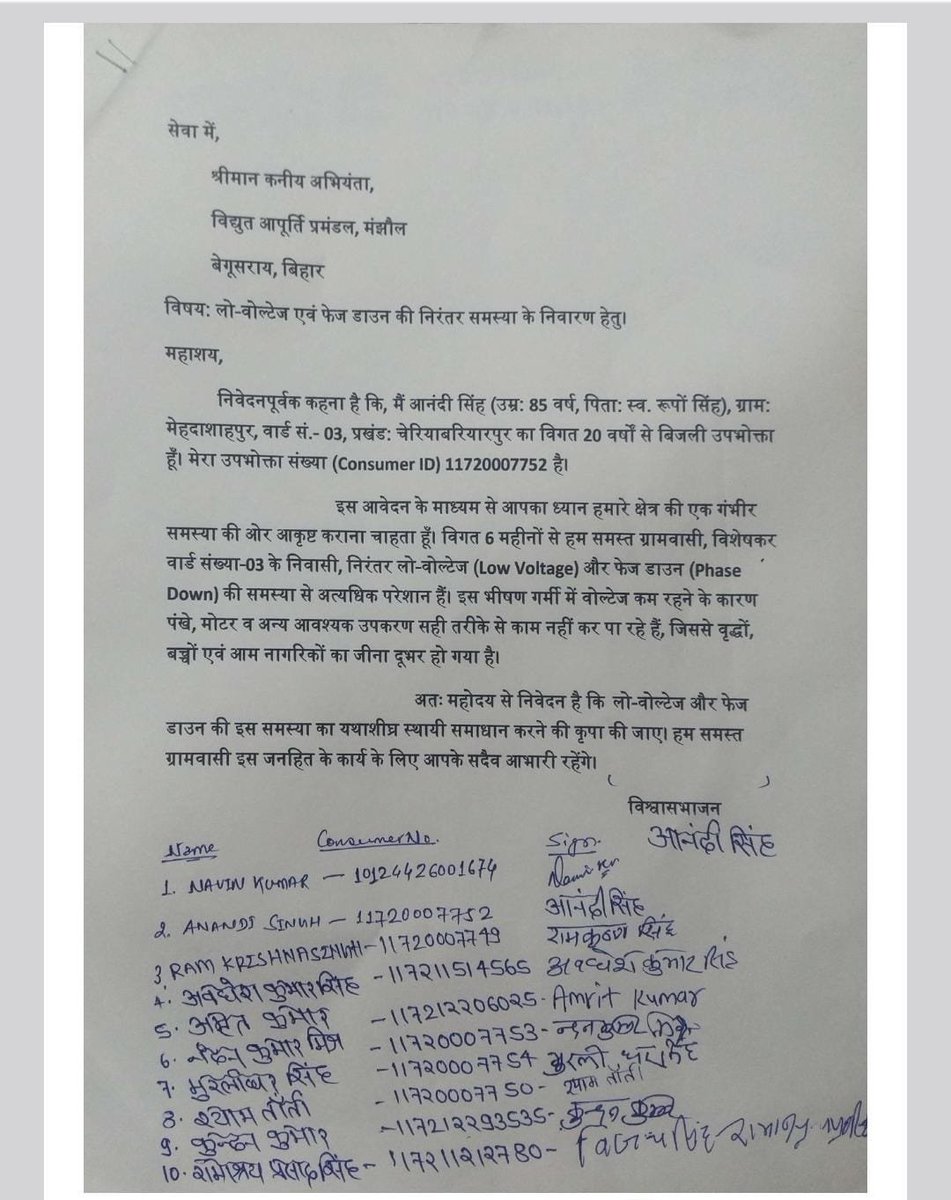 सेवा में,
श्रीमान कनीय अभियंता,
विद्युत आपूर्ति प्रमंडल, मंझौल
बेगूसराय, बिहार
विषय: लो-वोल्टेज एवं फेज डाउन की निरंतर समस्या के निवारण हेतु।
महाशय,
निवेदनपूर्वक कहना है कि, मैं आनंदी सिंह (उम्र: 85 वर्ष, पिता: स्व. रूपों सिंह), ग्राम:
मेहदाशाहपुर, वार्ड सं.- 03, प्रखंड: चेरियाबरियारपुर का विगत 20 वर्षों से बिजली उपभोक्ता
हूँ। मेरा उपभोक्ता संख्या (Consumer ID) 11720007752 है।
इस आवेदन के माध्यम से आपका ध्यान हमारे क्षेत्र की एक गंभीर
समस्या की ओर आकृष्ट कराना चाहता हूँ। विगत 6 महीनों से हम समस्त ग्रामवासी, विशेषकर
वार्ड संख्या-03 के निवासी, निरंतर लो-वोल्टेज (Low Voltage) और फेज डाउन (Phase
Down) की समस्या से अत्यधिक परेशान हैं। इस भीषण गर्मी में वोल्टेज कम रहने के कारण
पंखे, मोटर व अन्य आवश्यक उपकरण सही तरीके से काम नहीं कर पा रहे हैं, जिससे वृद्धों,
बच्चों एवं आम नागरिकों का जीना दूभर हो गया है।
अतः महोदय से निवेदन है कि लो-वोल्टेज और फेज
डाउन की इस समस्या का यथाशीघ्र स्थायी समाधान करने की कृपा की जाए। हम समस्त
ग्रामवासी इस जनहित के कार्य के लिए आपके सदैव आभारी रहेंगे।
विश्वासभाजन
आनंदी सिंह
Name Consumer No. Sign.
1. NAVIN KUMAR - 10124426001674
2. ANANDI SINGH - 11720007752 आनंदी सिंह
3. RAM KRISHNA SINGH - 11720007749 रामकृष्ण सिंह
4. अवधेश कुमार सिंह - 117211514565 अवधेश कुमार सिंह
5. अमृत कुमार - 117212206025 - Amrit Kumar
6. कुमार मिश्र - 11720007753 -
7. मुरलीधर सिंह - 11720007754 मुरली धर सिंह
8. श्याम ताँती - 11720007750 - श्याम ताँती
9. कुन्दन कुमार - 117212293535 - कुन्दन कुमार
10. रामाश्रय प्रसाद सिंह - 117211212780 -